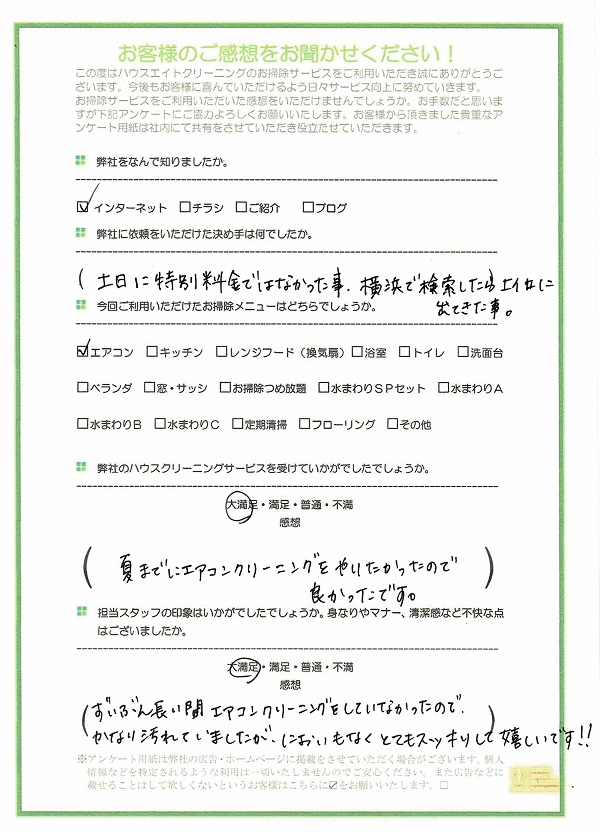 お客様のご感想をお聞かせください！
この度はハウスエイトクリーニングのお掃除サービスをご利用いただき誠にありがとうご
ざいます。今後もお客様に喜んでいただけるよう日々サービス向上に努めていきます。
お掃除サービスをご利用いただいた感想をいただけませんでしょうか。お手数だと思いま
すが下記アンケートにご協力よろしくお願いいたします。お客様から頂きました貴重なア
ンケート用紙は社内にて共有をさせていただき役立たせていただきます。
弊社をなんで知りましたか。
☑インターネット □チラシ □ご紹介 □ブログ
弊社に依頼をいただけた決め手は何でしたか。
(土日に特別料金ではなかった事、横浜で検索したら上位に
出てきた事。
今回ご利用いただけたお掃除メニューはどちらでしょうか。
☑エアコン □キッチン □レンジフード（換気扇）□浴室 □トイレ □洗面台
□ベランダ □窓・サッシ □お掃除つめ放題 □水まわりＳＰセット □水まわりＡ
□水まわりＢ □水まわりＣ □定期清掃 □フローリング □その他
弊社のハウスクリーニングサービスを受けていかがでしたでしょうか。
大満足・満足・普通・不満
感想
(夏までにエアコンクリーニングをやりたかったので
良かったです。)
担当スタッフの印象はいかがでしたでしょうか。身なりやマナー、清潔感など不快な点
はございましたか。
大満足・満足・普通・不満
感想
(ずいぶん長い間エアコンクリーニングをしていなかったので、
かなり汚れていましたが、においもなくとてもスッキリして嬉しいです!!)
※アンケート用紙は弊社の広告・ホームページに掲載をさせていただく場合がございます。個人
情報などを特定されるような利用は一切いたしませんのでご安心ください。また広告などに
載せることはして欲しくないというお客様はこちらに☑をお願いいたします。□